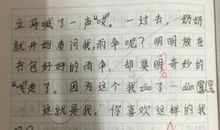 立马喊了一声"哎"。一过去，奶奶
就开始质问我，雨伞呢？明明放在
书包好好的雨伞，却莫明奇妙的
"飞"走了。因为这个我 了一
这就是我，你喜欢这样的我